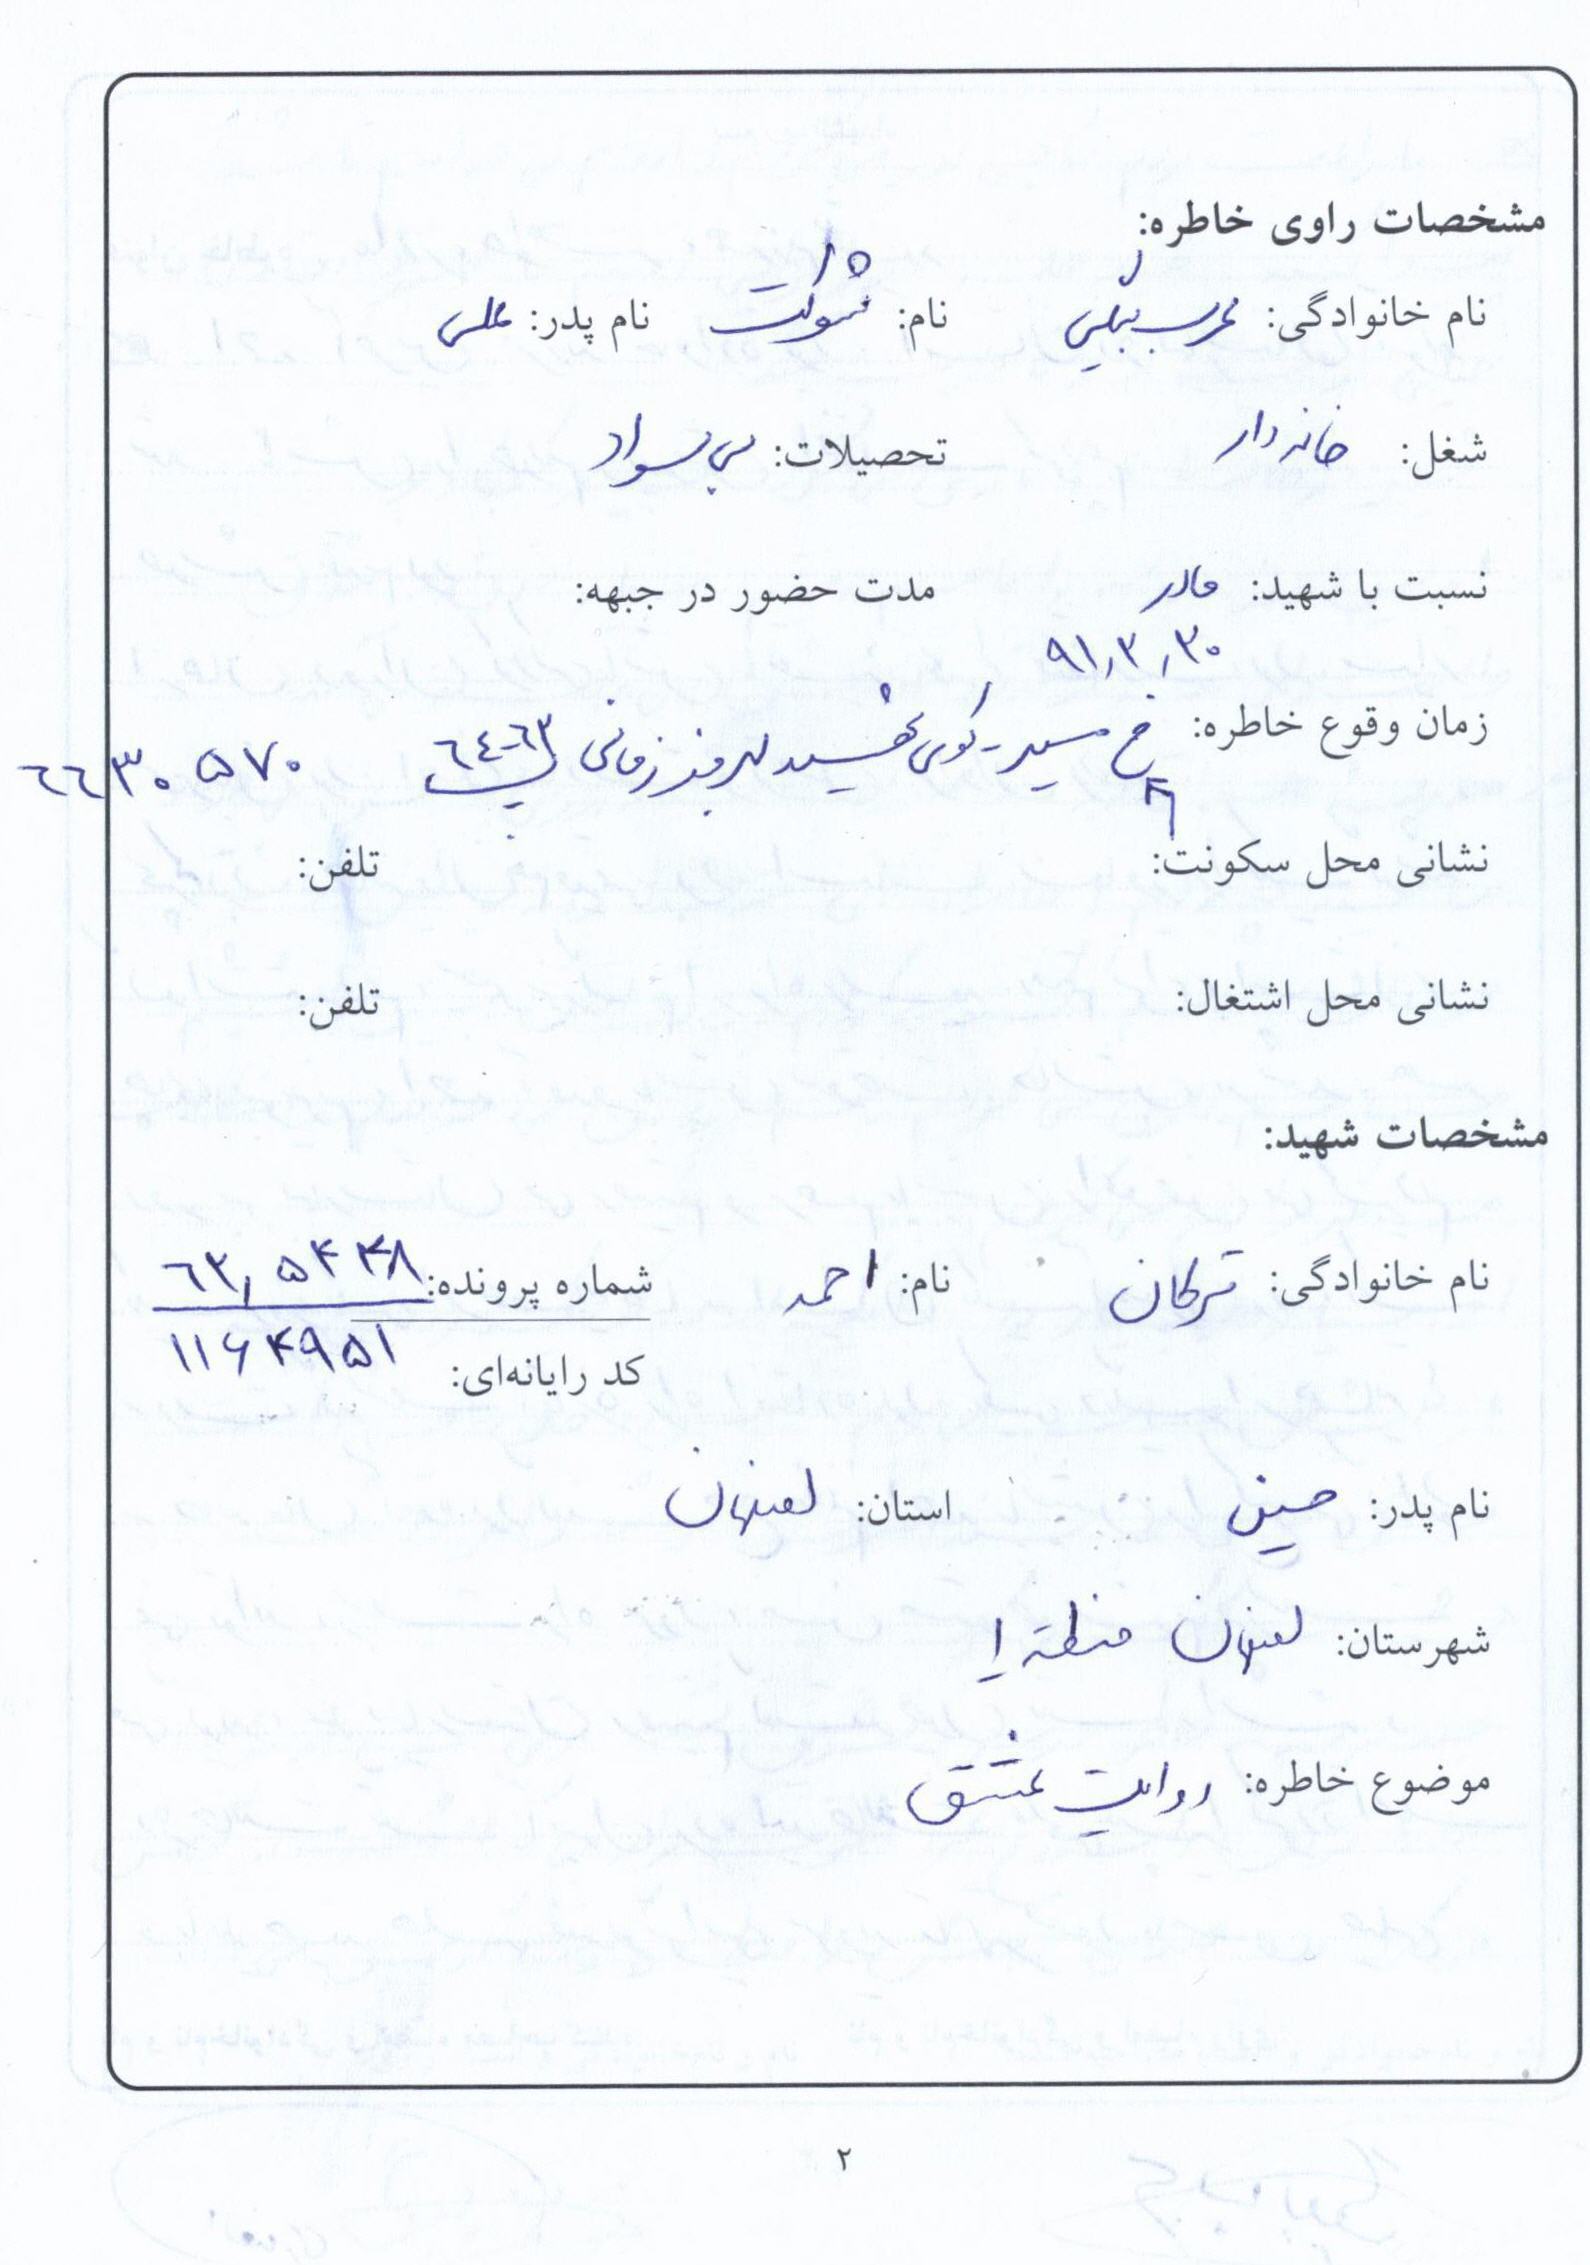 مشخصات راوی خاطره:
نام خانوادگی: عرب بیگی نام: شوکت نام پدر: علی
شغل: خانه دار تحصیلات: بی سواد
نسبت با شهید: مادر مدت حضور در جبهه:
۹۱٫۳٫۳۰
زمان وقوع خاطره:
خ مسیر - کوی شهید بهروز زمانی پ ۶۳-۶۴ ۶۶۳۰۵۷۰
نشانی محل سکونت: تلفن:
نشانی محل اشتغال: تلفن:
مشخصات شهید:
نام خانوادگی: ترکان نام: احمد شماره پرونده: ۶۳٫۵۴۴۸
کد رایانه‌ای: ۱۱۶۴۹۵۱
نام پدر: حسین استان: اصفهان
شهرستان: اصفهان منطقه ۱
موضوع خاطره: روایت عشق
۲